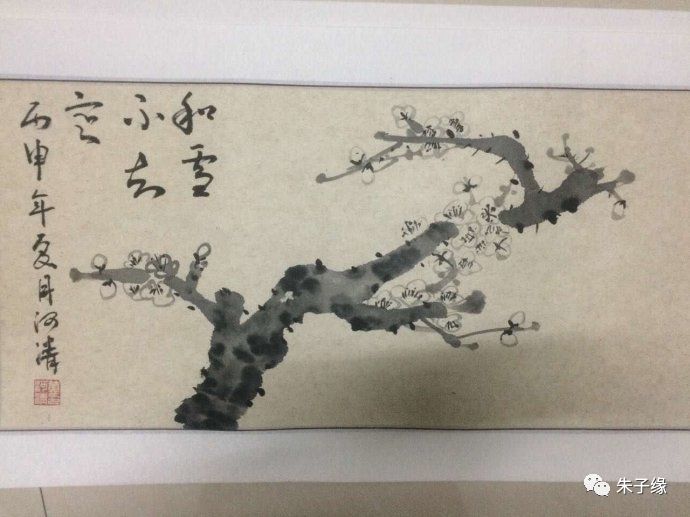 和雪
不知
寒
丙申年夏月河清
朱子缘